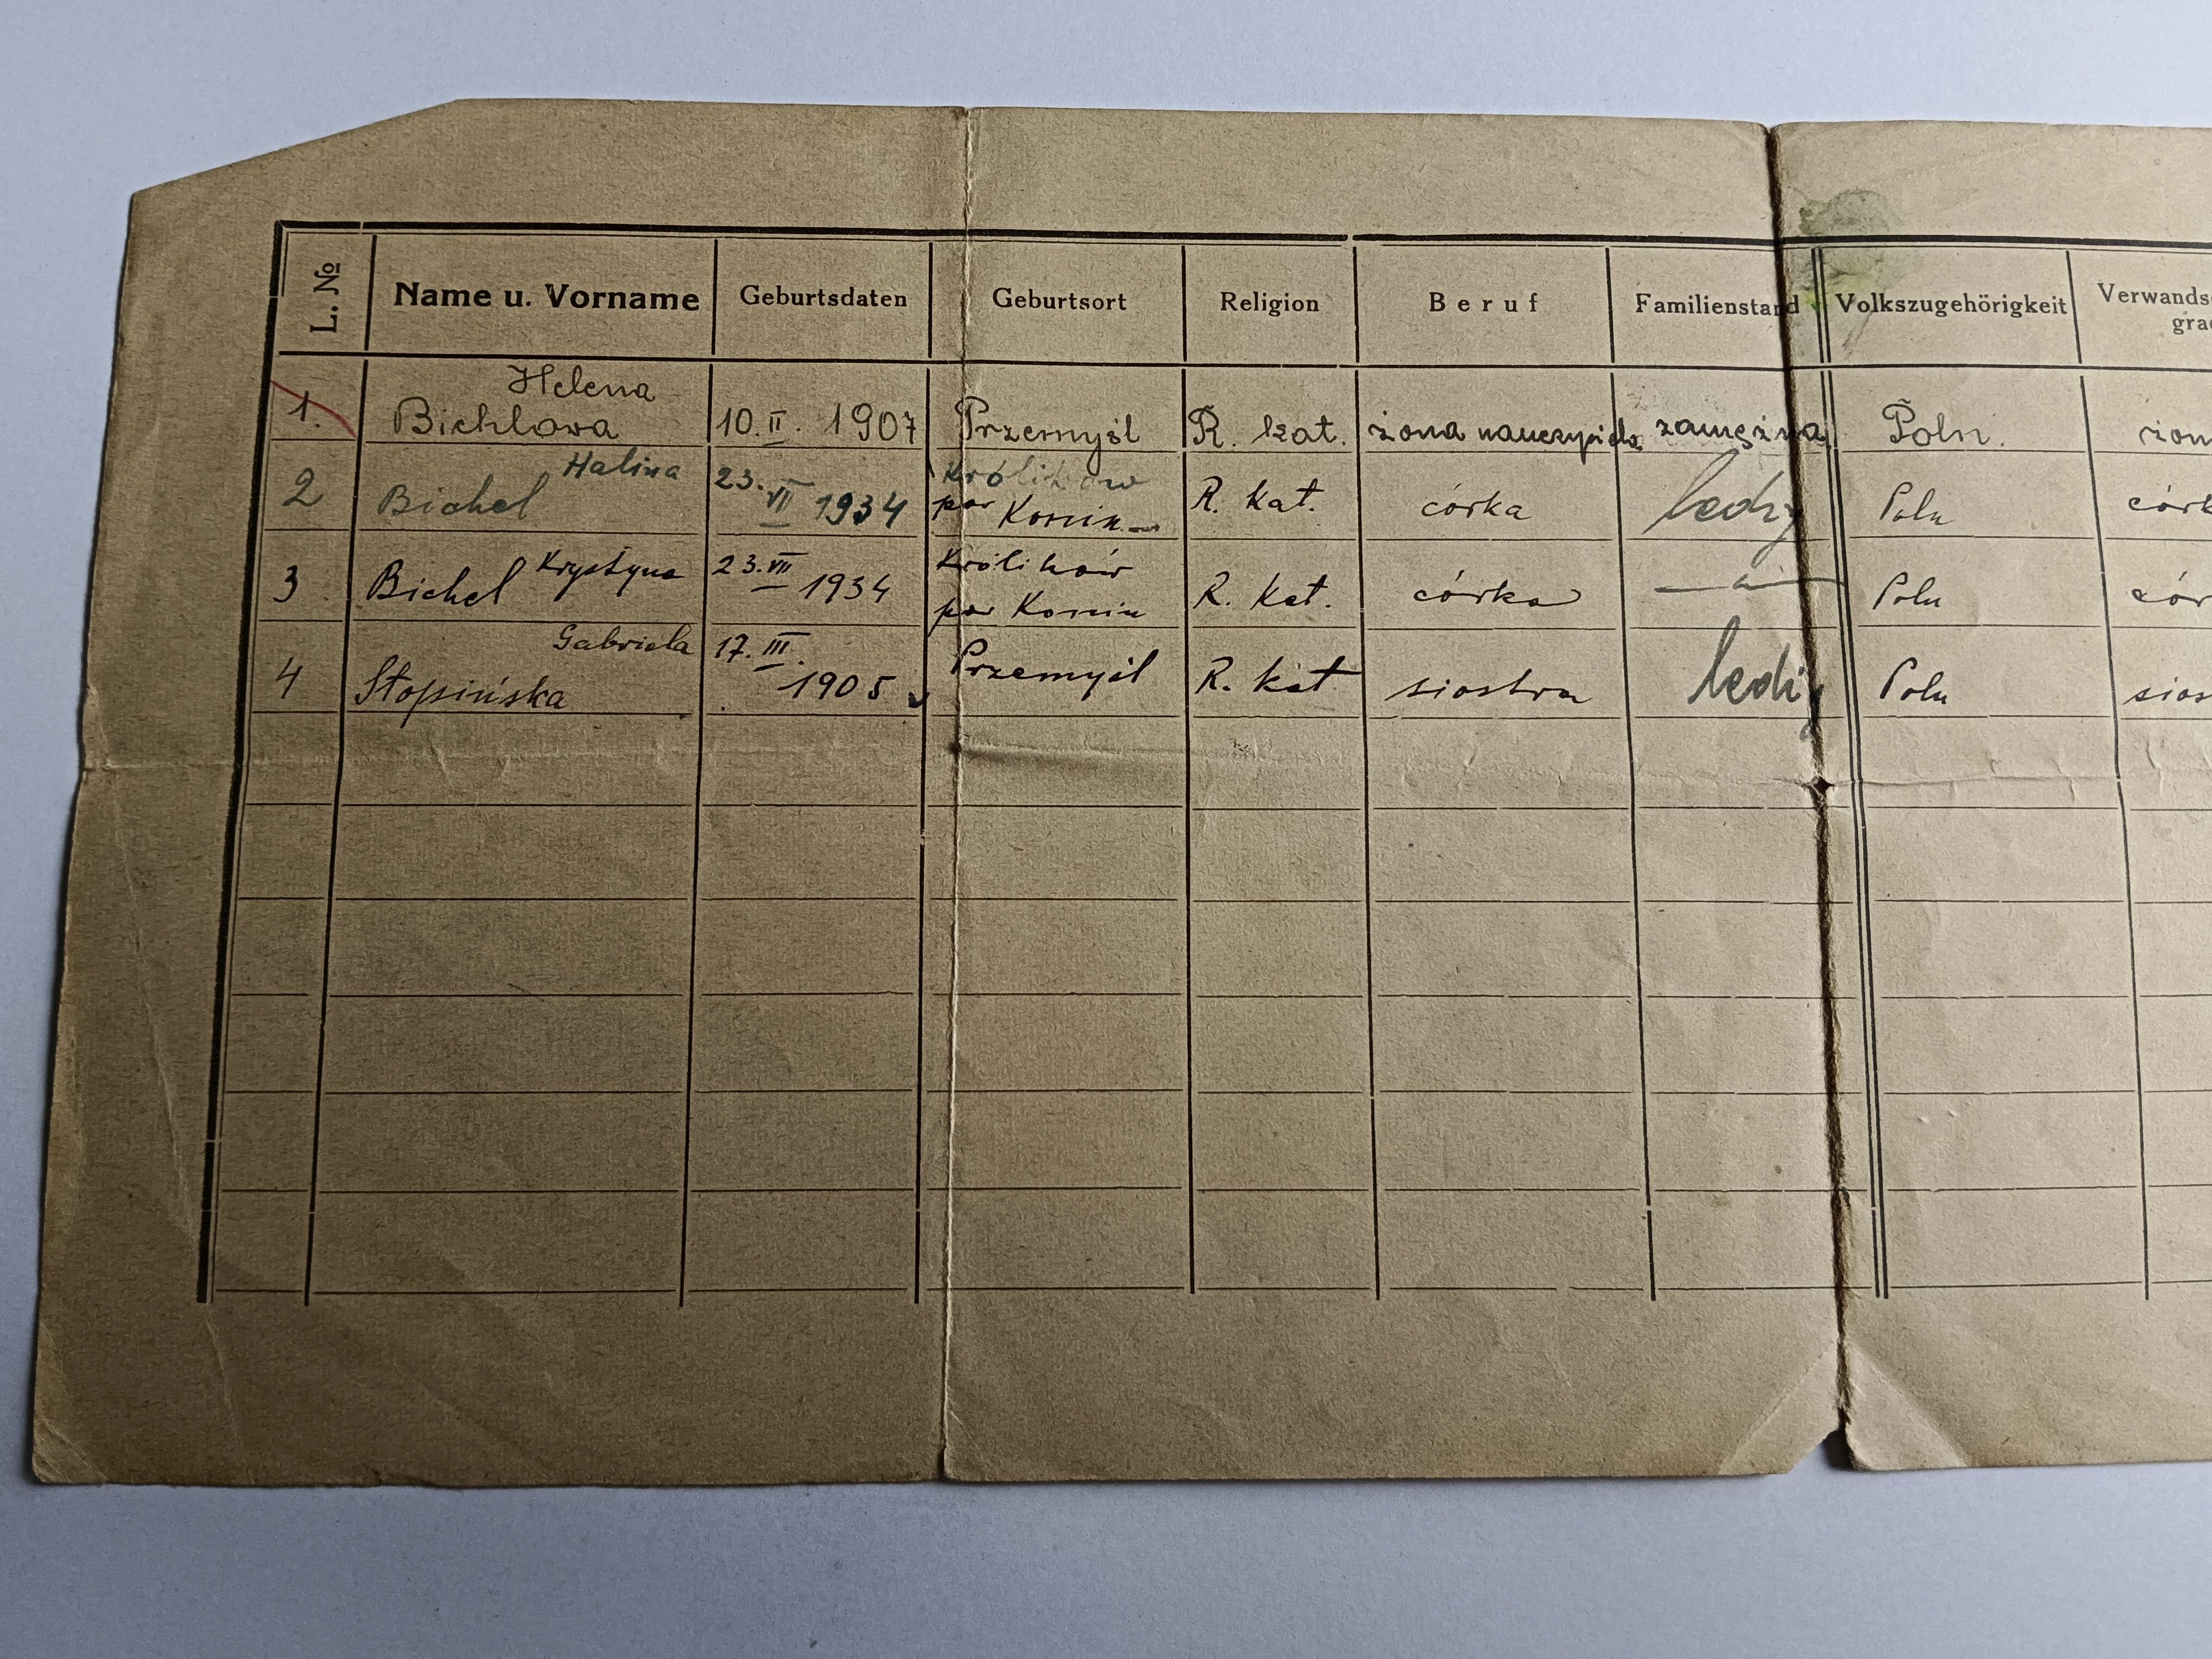 L. № Name u. Vorname Geburtsdaten Geburtsort Religion Beruf Familienstand Volkszugehörigkeit Verwands
gra
Helena
1. Bichlowa 10. II. 1907 Przemyśl R. kat. żona nauczyciela zamężna Poln. żon
Halina 23. Królików
2 Bichel VII 1934 pow Konin R. kat. córka ledig Poln córk
Krystyna 23. VII Królików
3 Bichel 1934 pow Konin R. kat. córka Poln cór
Gabriela 17. III.
4 Stopińska 1905 Przemyśl R. kat siostra ledig Poln sios